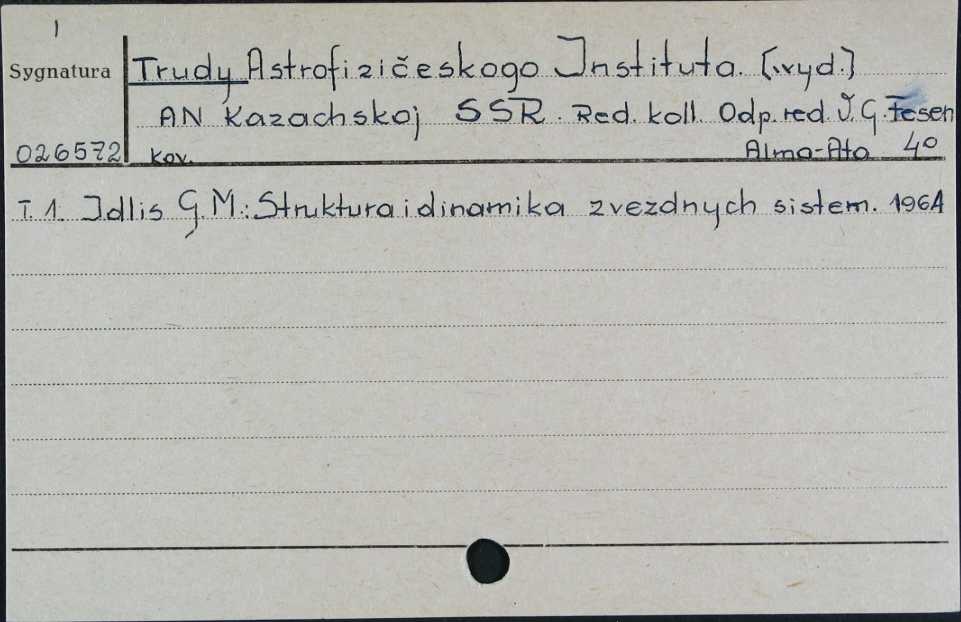 1
Sygnatura
Trudy Astrofizičeskogo Instituta. [wyd.]
AN Kazachskoj SSR. Red. koll. Odp. red. V. G. Fesen
026572 kov. Alma-Ata 4°
T. 1. Idlis G. M.: Struktura i dinamika zvezdnych sistem. 1961